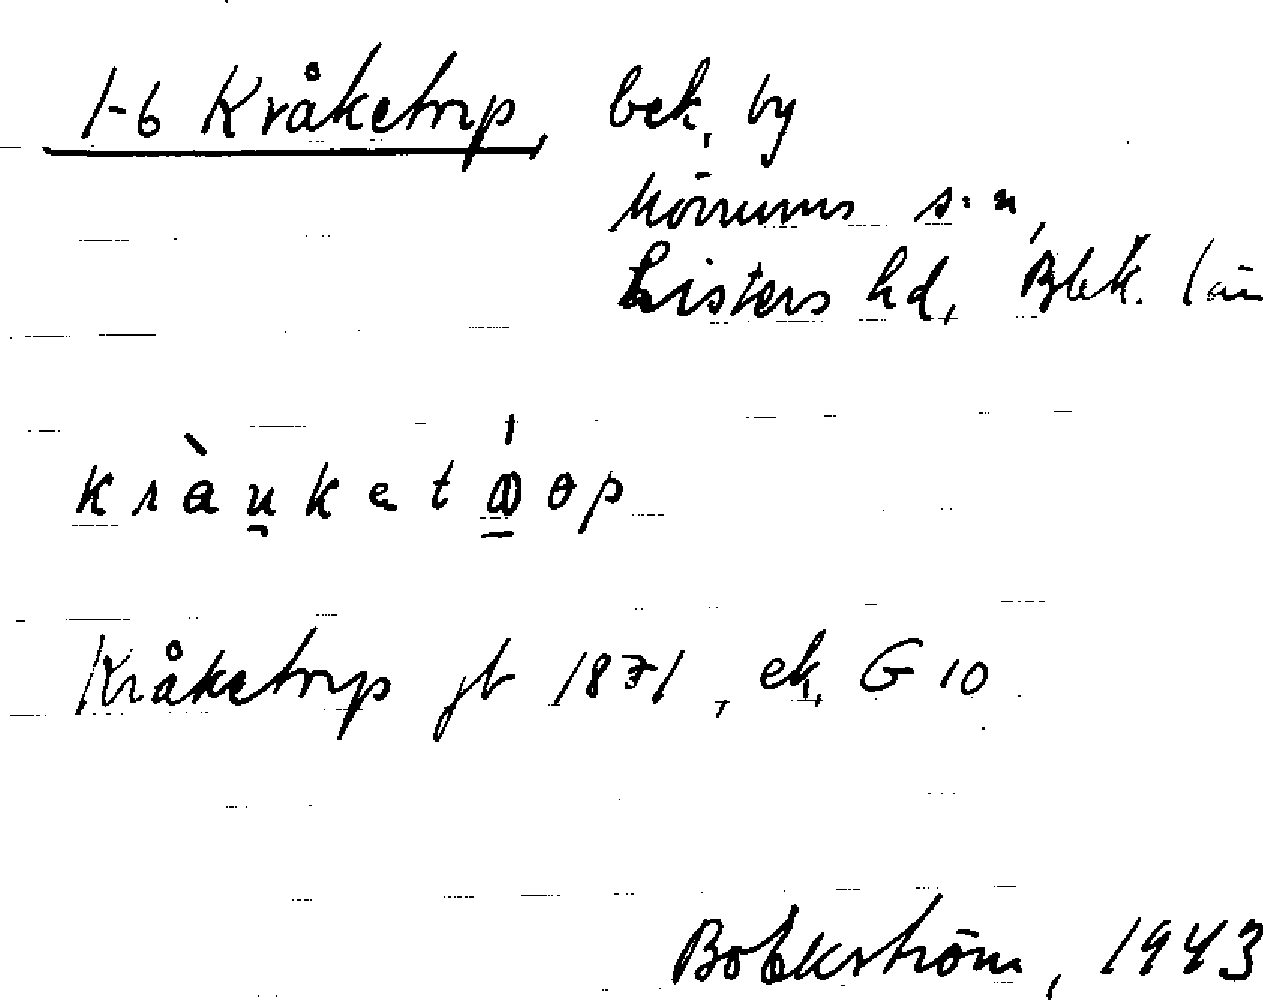 1-6 Kråketorp, bek. by
Mörrums s:n,
Listers hd, Blek. län
Kråketorp jb 1871, ek. G 10
Bo Eckström, 1943